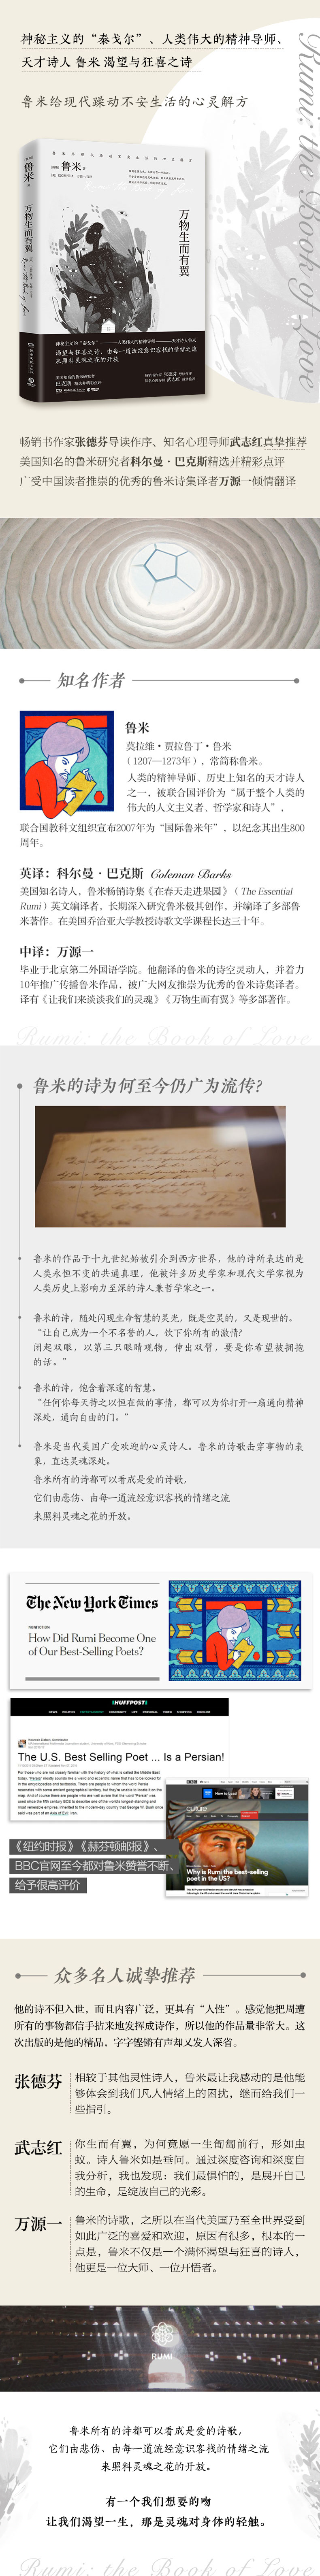 神秘主义的“泰戈尔”、人类伟大的精神导师、
天才诗人 鲁米 渴望与狂喜之诗
鲁米给现代躁动不安生活的心灵解方
Rumi: the Book of Love
鲁米
万物生而有翼
鲁米 著
万物生而有翼
神秘主义的“泰戈尔”——人类伟大的精神导师——天才诗人鲁米
渴望与狂喜之诗，由每一道流经意识客栈的情绪之流
来照料灵魂之花的开放
畅销书作家张德芬导读作序、知名心理导师武志红真挚推荐
美国知名的鲁米研究者科尔曼·巴克斯精选并精彩点评
广受中国读者推崇的优秀的鲁米诗集译者万源一倾情翻译
知名作者
鲁米
莫拉维·贾拉鲁丁·鲁米
（1207—1273年），常简称鲁米。
人类的精神导师、历史上知名的天才诗人
之一，被联合国评价为“属于整个人类的
伟大的人文主义者、哲学家和诗人”，
联合国教科文组织宣布2007年为“国际鲁米年”，以纪念其出生800
周年。
英译：科尔曼·巴克斯 Coleman Barks
美国知名诗人、鲁米畅销诗集《在春天走进果园》（The Essential
Rumi）英文编译者，长期深入研究鲁米极其创作，并编译了多部鲁
米著作。在美国乔治亚大学教授诗歌文学课程长达三十年。
中译：万源一
毕业于北京第二外国语学院。他翻译的鲁米的诗空灵动人，并着力
10年推广传播鲁米作品，被广大网友推崇为优秀的鲁米诗集译者。
译有《让我们来谈谈我们的灵魂》《万物生而有翼》等多部著作。
Rumi: the Book of Love
鲁米的诗为何至今仍广为流传？
鲁米的作品于十九世纪始被引介到西方世界，他的诗所表达的是
人类永恒不变的共通真理，他被许多历史学家和现代文学家视为
人类历史上影响力至深的诗人兼哲学家之一。
鲁米的诗，随处闪现生命智慧的灵光，既是空灵的，又是现世的。
“让自己成为一个不名誉的人，饮下你所有的激情？
闭起双眼，以第三只眼睛观物，伸出双臂，要是你希望被拥抱
的话。”
鲁米的诗，饱含着深邃的智慧。
“任何你每天恃之以恒在做的事情，都可以为你打开一扇通向精神
深处，通向自由的门。”
鲁米是当代美国广受欢迎的心灵诗人。鲁米的诗歌击穿事物的表
象，直达灵魂深处。
鲁米所有的诗都可以看成是爱的诗歌，
它们由悲伤、由每一道流经意识客栈的情绪之流
来照料灵魂之花的开放。
The New York Times
NONFICTION
How Did Rumi Become One
of Our Best-Selling Poets?
HUFFPOST
The U.S. Best Selling Poet ... Is a Persian!
BBC
culture
Why is Rumi the best-selling
poet in the US?
《纽约时报》《赫芬顿邮报》、
BBC官网至今都对鲁米赞誉不断、
给予很高评价
众多名人诚挚推荐
他的诗不但入世，而且内容广泛，更具有“人性”。感觉他把周遭
所有的事物都信手拈来地发挥成诗作，所以他的作品量非常大。这
次出版的是他的精品，字字铿锵有声却又发人深省。
张德芬
相较于其他灵性诗人，鲁米最让我感动的是他能
够体会到我们凡人情绪上的困扰，继而给我们一
些指引。
武志红
你生而有翼，为何竟愿一生匍匐前行，形如虫
蚁。诗人鲁米如是垂问。通过深度咨询和深度自
我分析，我也发现：我们最惧怕的，是展开自己
的生命，是绽放自己的光彩。
万源一
鲁米的诗歌，之所以在当代美国乃至全世界受到
如此广泛的喜爱和欢迎，原因有很多，根本的一
点是，鲁米不仅是一个满怀渴望与狂喜的诗人，
他更是一位大师、一位开悟者。
RUMI
鲁米所有的诗都可以看成是爱的诗歌，
它们由悲伤、由每一道流经意识客栈的情绪之流
来照料灵魂之花的开放。
有一个我们想要的吻
让我们渴望一生，那是灵魂对身体的轻触。
Rumi: the Book of Love